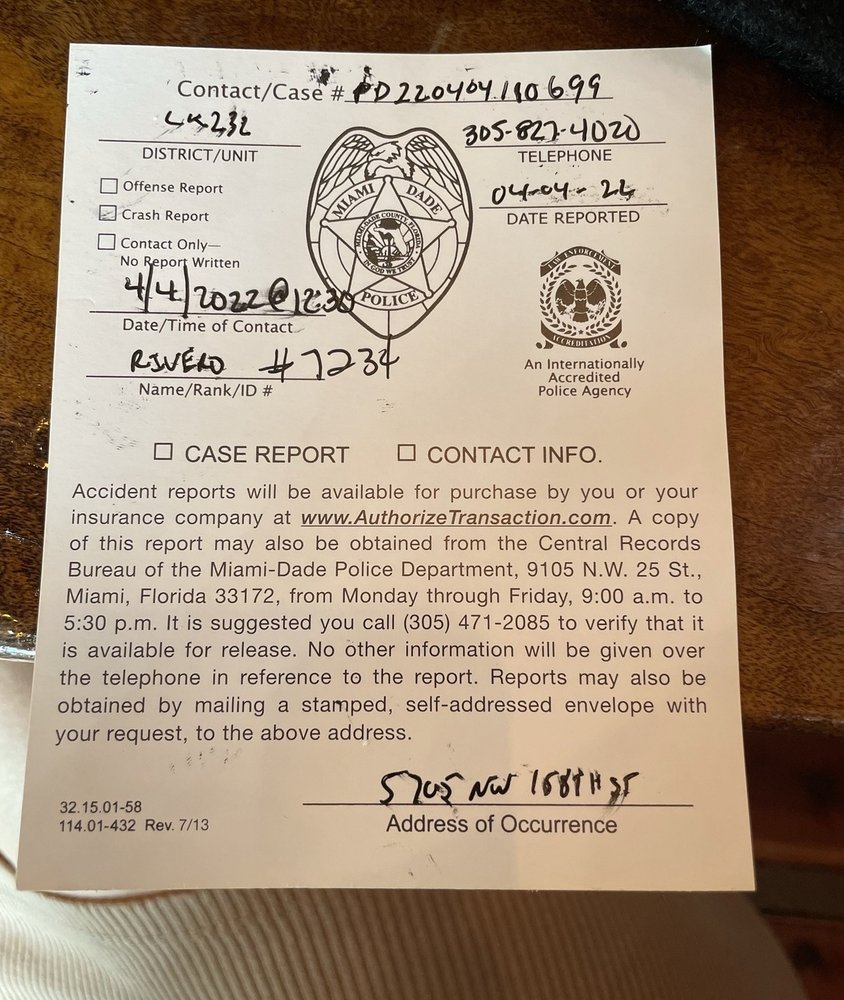 Contact/Case # PD220404110699
305-827-4020
DISTRICT/UNIT
TELEPHONE
Offense Report
04-04-22
Crash Report
DATE REPORTED
Contact Only—
No Report Written
MIAMI DADE
MIAMI-DADE COUNTY, FLORIDA
IN GOD WE TRUST
POLICE
LAW ENFORCEMENT
ACCREDITATION
4/4/2022 @ 12:30
Date/Time of Contact
An Internationally
Accredited
Police Agency
RIVERO #7234
Name/Rank/ID #
CASE REPORT CONTACT INFO.
Accident reports will be available for purchase by you or your
insurance company at www.AuthorizeTransaction.com. A copy
of this report may also be obtained from the Central Records
Bureau of the Miami-Dade Police Department, 9105 N.W. 25 St.,
Miami, Florida 33172, from Monday through Friday, 9:00 a.m. to
5:30 p.m. It is suggested you call (305) 471-2085 to verify that it
is available for release. No other information will be given over
the telephone in reference to the report. Reports may also be
obtained by mailing a stamped, self-addressed envelope with
your request, to the above address.
5705 NW 158TH ST
32.15.01-58
114.01-432 Rev. 7/13
Address of Occurrence